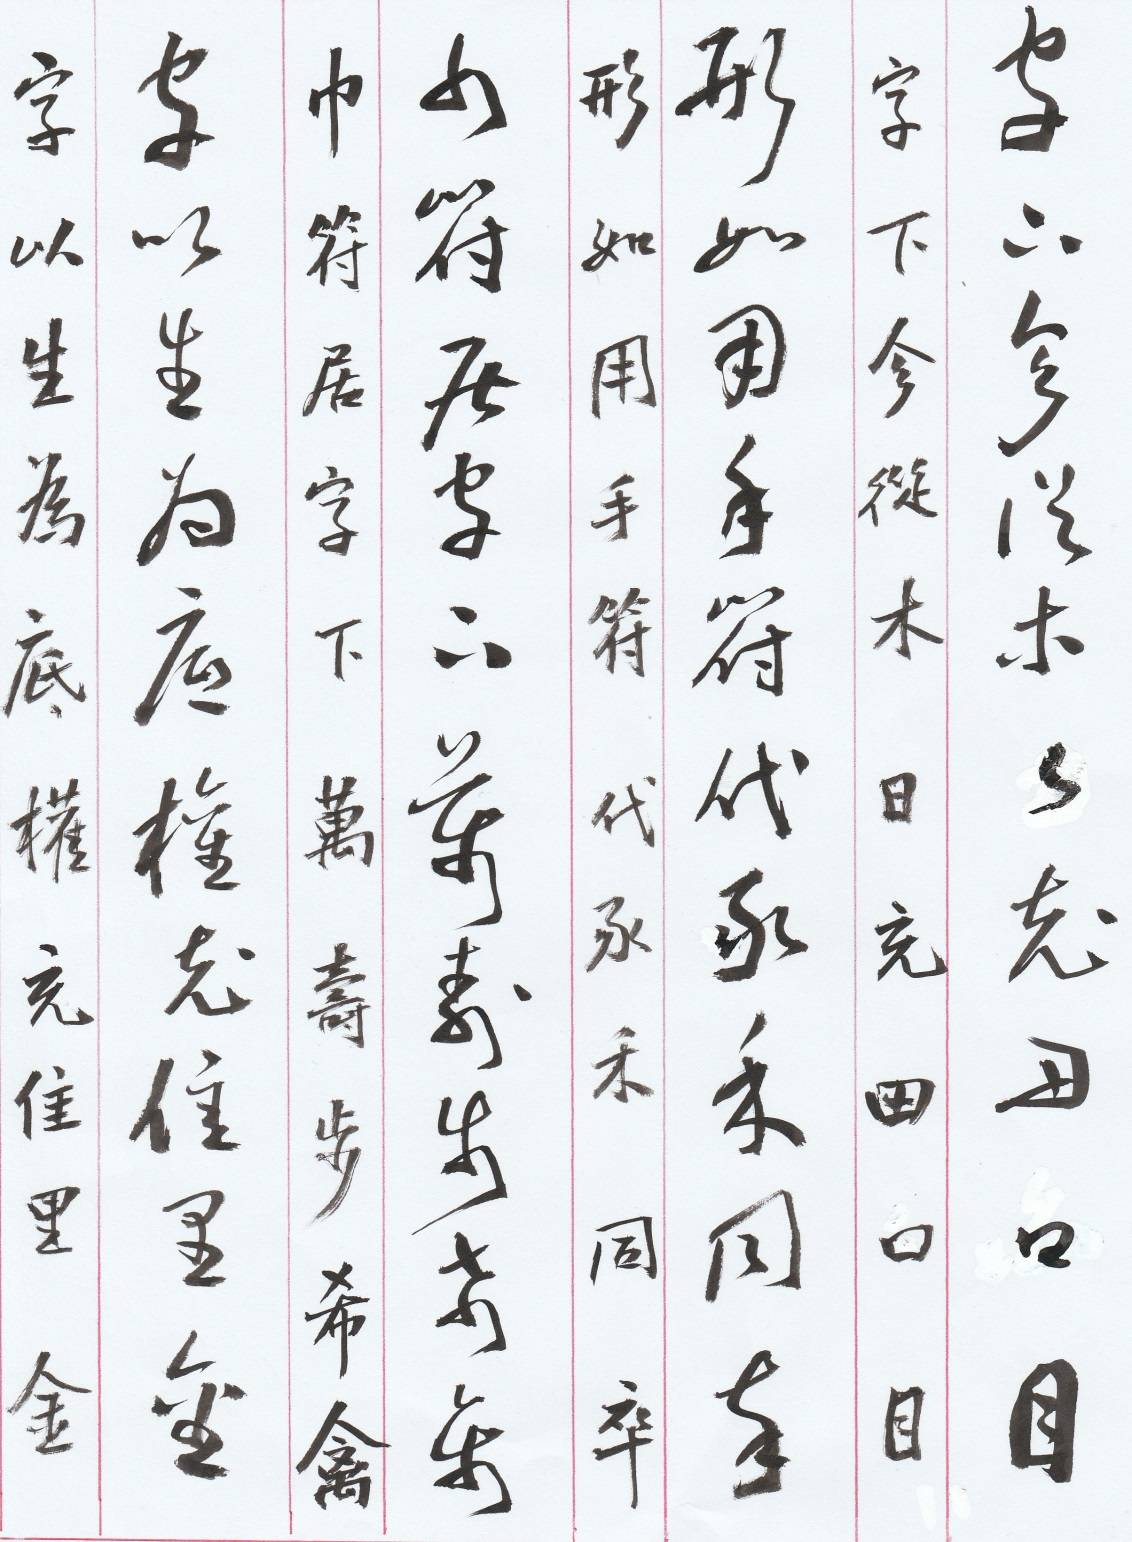 字下今從木日充田口目
字下今從木日充田口目
形如用手符代豕禾同卒
形如用手符代豕禾同卒
巾符居字下萬壽步希禽
巾符居字下萬壽步希禽
字以生為底權充隹里金
字以生為底權充隹里金